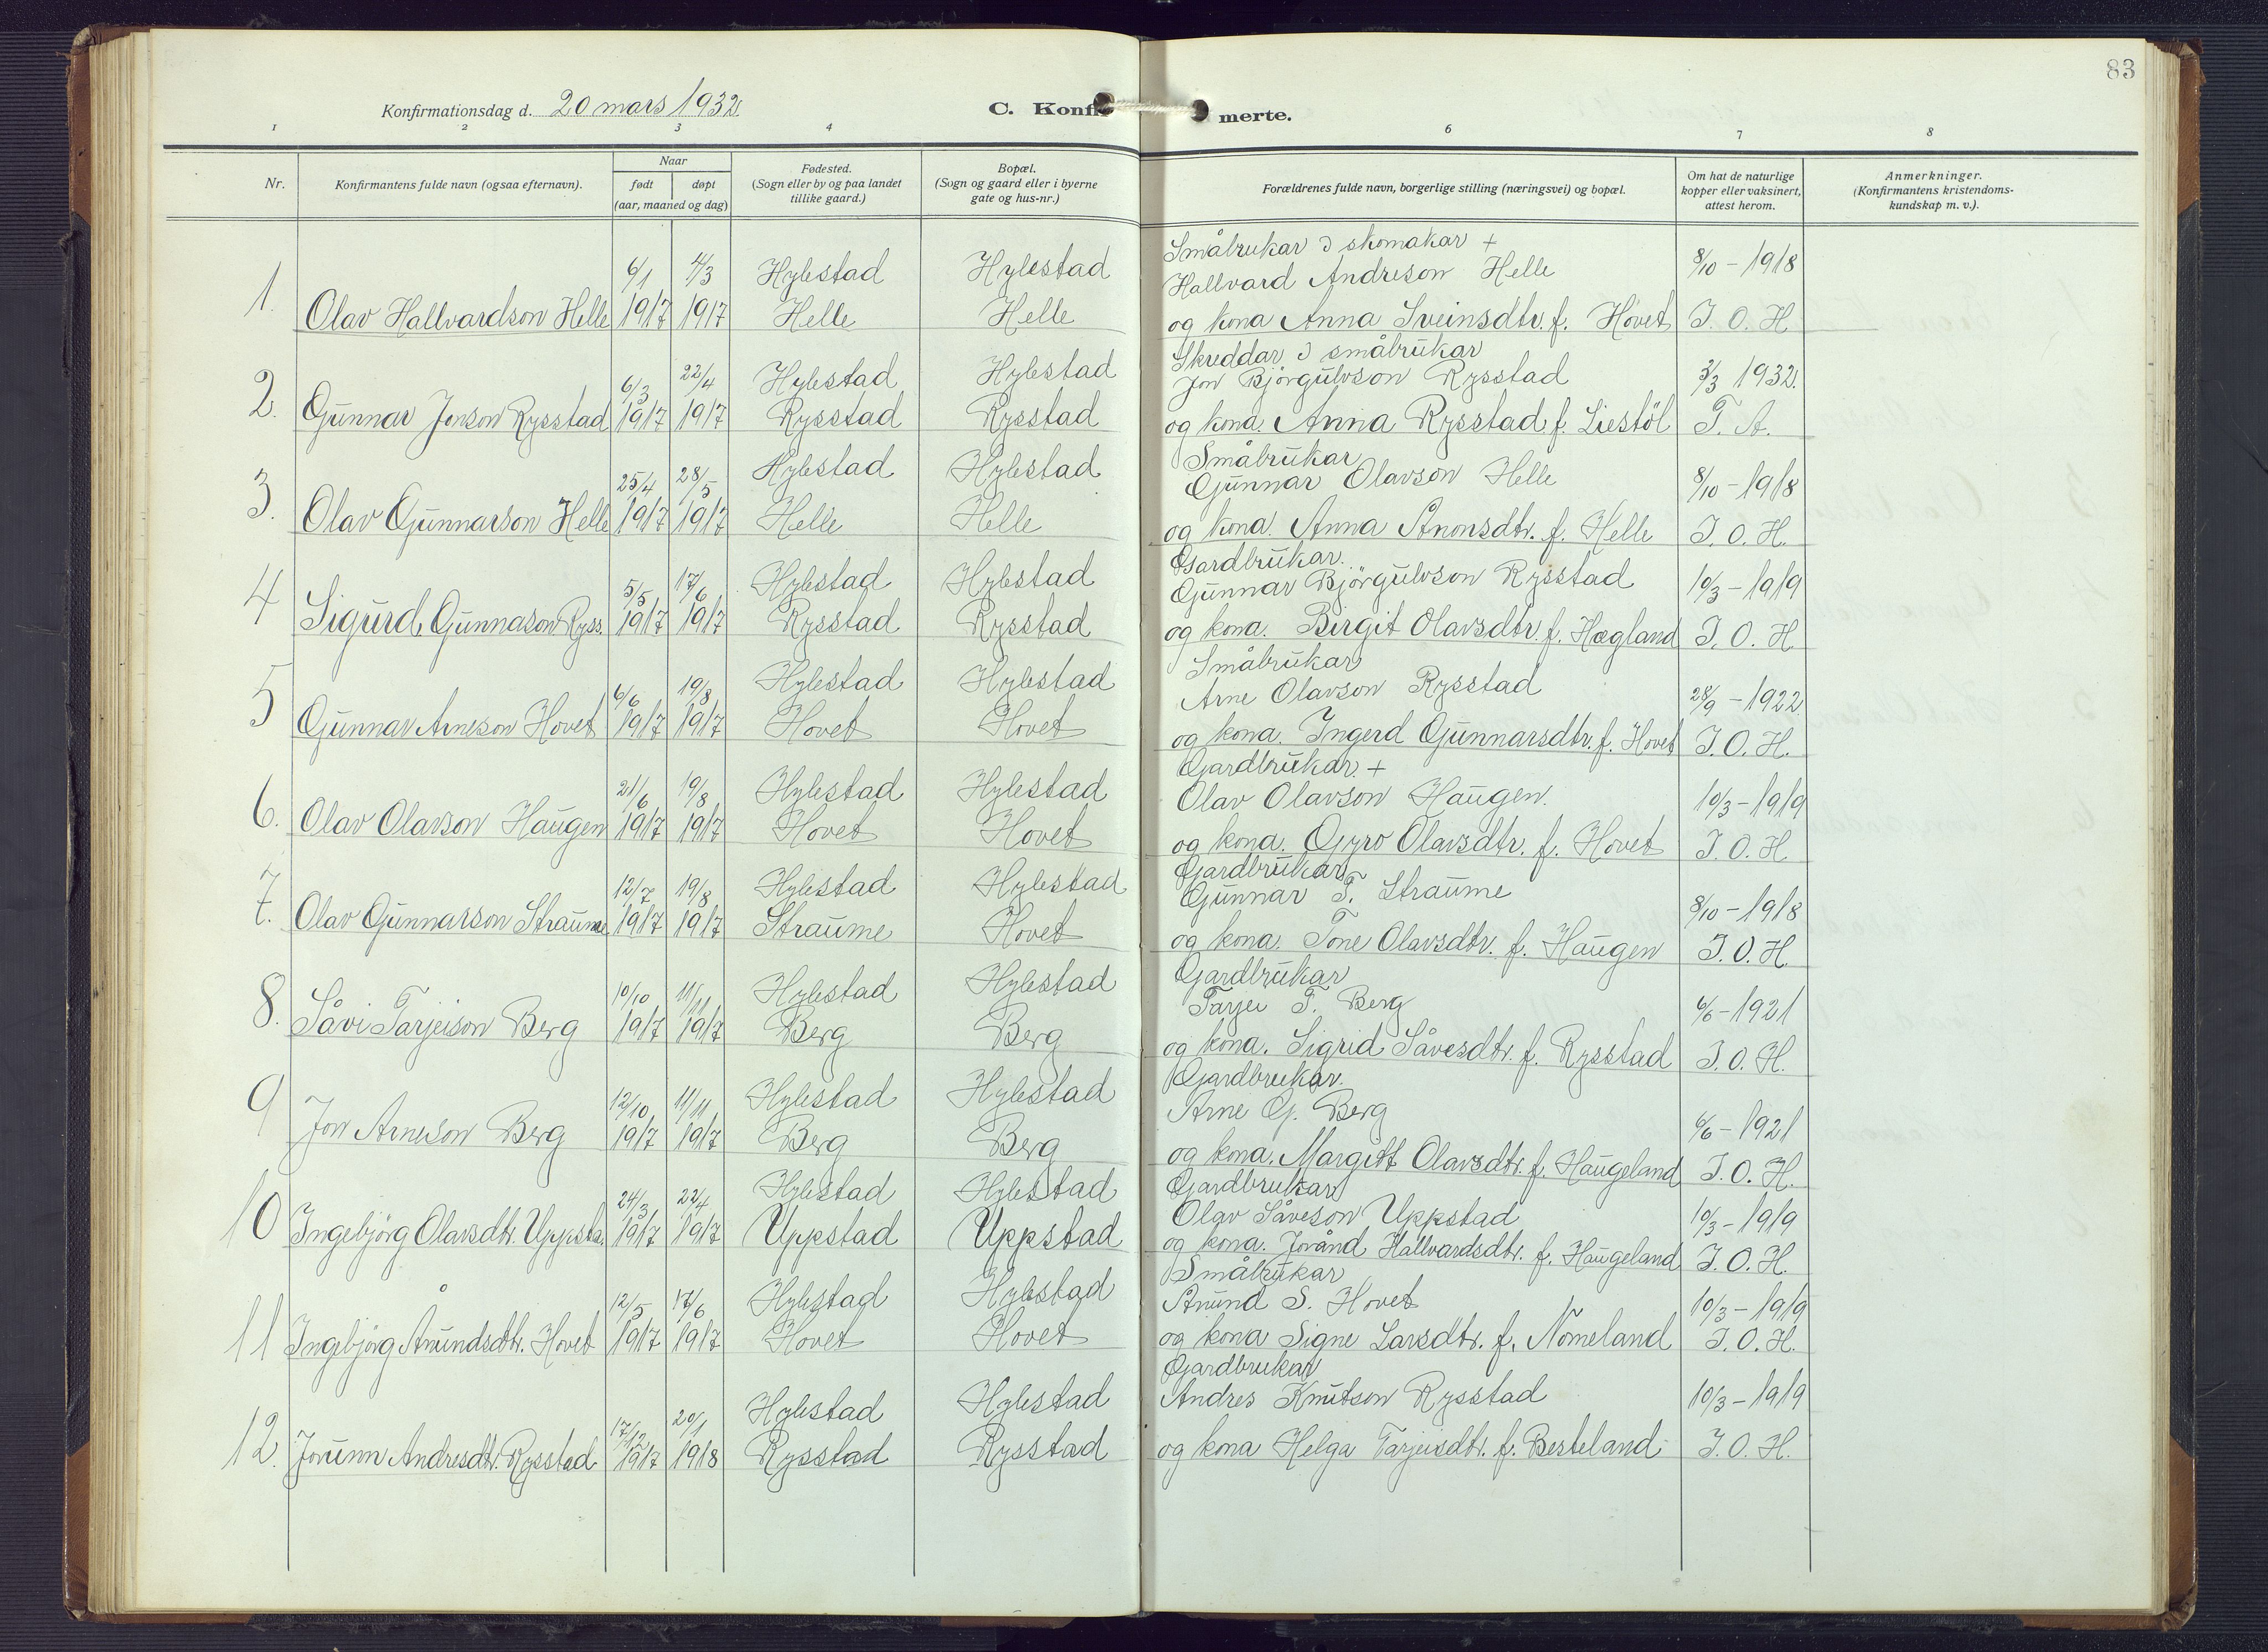 83
Konfirmationsdag d. 20 mars 1932.
C. Konfi merte.
1 2 3 4 6 7 8
Nr.
Konfirmantens fulde navn (ogsaa efternavn).
Naar
født døpt
(aar, maaned og dag)
Fødested.
(Sogn eller by og paa landet
tillike gaard.)
Bopæl.
(Sogn og gaard eller i byerne
gate og hus-nr.)
Forældrenes fulde navn, borgerlige stilling (næringsvei) og bopæl.
Om hat de naturlige
kopper eller vaksinert,
attest herom.
Anmerkninger.
(Konfirmantens kristendoms-
kundskap m. v.).
Småbrukar & skomakar +
6/1 4/3 Hylestad Hylestad Hallvard Andreson Helle 8/10 - 1918
1. Olav Hallvardson Helle 1917 1917 Helle Helle og kona Anna Sveinsdtr. f. Hovet J. O. H.
Skreddar & småbrukar
6/3 22/4 Hylestad Hylestad Jon Björgulvson Rysstad 3/3 1932.
2. Gunnar Jonson Rysstad 1917 1917 Rysstad Rysstad og kona. Anna Rysstad f. Liestöl T. A.
Småbrukar
25/4 28/5 Hylestad Hylestad Gunnar Olavson Helle 8/10 - 1918
3. Olav Gunnarson Helle 1917 1917 Helle Helle og kona. Anna Ånonsdtr. f. Helle J. O. H.
Gardbrukar.
5/5 17/6 Hylestad Hylestad Gunnar Björgulvson Rysstad 10/3 - 1919
4 Sigurd Gunnason Ryss. 1917 1917 Rysstad Rysstad og kona. Birgit Olavsdtr. f. Hægland J. O. H.
Småbrukar
6/6 19/8 Hylestad Hylestad Arne Olavson Rysstad 28/9 - 1922
5 Gunnar Arneson Hovet 1917 1917 Hovet Hovet og kona. Ingerd Gunnarsdtr. f. Hovet J. O. H.
Gardbrukar. +
21/6 19/8 Hylestad Hylestad Olav Olavson Haugen. 10/3 - 1919
6. Olav Olavson Haugen 1917 1917 Hovet Hovet og kona. Gyro Olavsdtr. f. Hovet J. O. H.
Gardbrukar
12/7 19/8 Hylestad Hylestad Gunnar T. Straume 8/10 - 1918
7. Olav Gunnarson Straume 1917 1917 Straume Hovet og kona. Tone Olavsdtr. f. Haugen J. O. H.
Gardbrukar
10/10 11/11 Hylestad Hylestad Tarjei T. Berg 6/6 - 1921
8. Såvi Tarjeison Berg 1917 1917 Berg Berg og kona. Sigrid Såvesdtr. f. Rysstad J. O. H.
Gardbrukar.
12/10 11/11 Hylestad Hylestad Arne G. Berg 6/6 - 1921
9 Jon Arneson Berg 1917 1917 Berg Berg og kona. Margitt Olavsdtr. f. Haugeland J. O. H.
Gardbrukar
24/3 22/4 Hylestad Hylestad Olav Såveson Uppstad 10/3 - 1919
10 Ingebjörg Olavsdtr. Uppsta. 1917 1917 Uppstad Uppstad og kona. Jorånd Hallvardsdtr. f. Haugeland J. O. H.
Småbrukar
12/5 17/6 Hylestad Hylestad Anund S. Hovet 10/3 - 1919
11 Ingebjörg Ånundsdtr. Hovet 1917 1917 Hovet Hovet og kona Signe Larsdtr. f. Nomeland J. O. H.
Gardbrukar
17/12 20/1 Hylestad Hylestad Andres Knutson Rysstad 10/3 - 1919
12. Jorunn Andresdtr. Rysstad 1917 1918 Rysstad Rysstad og kona Helga Tarjeisdtr. f. Besteland J. O. H.